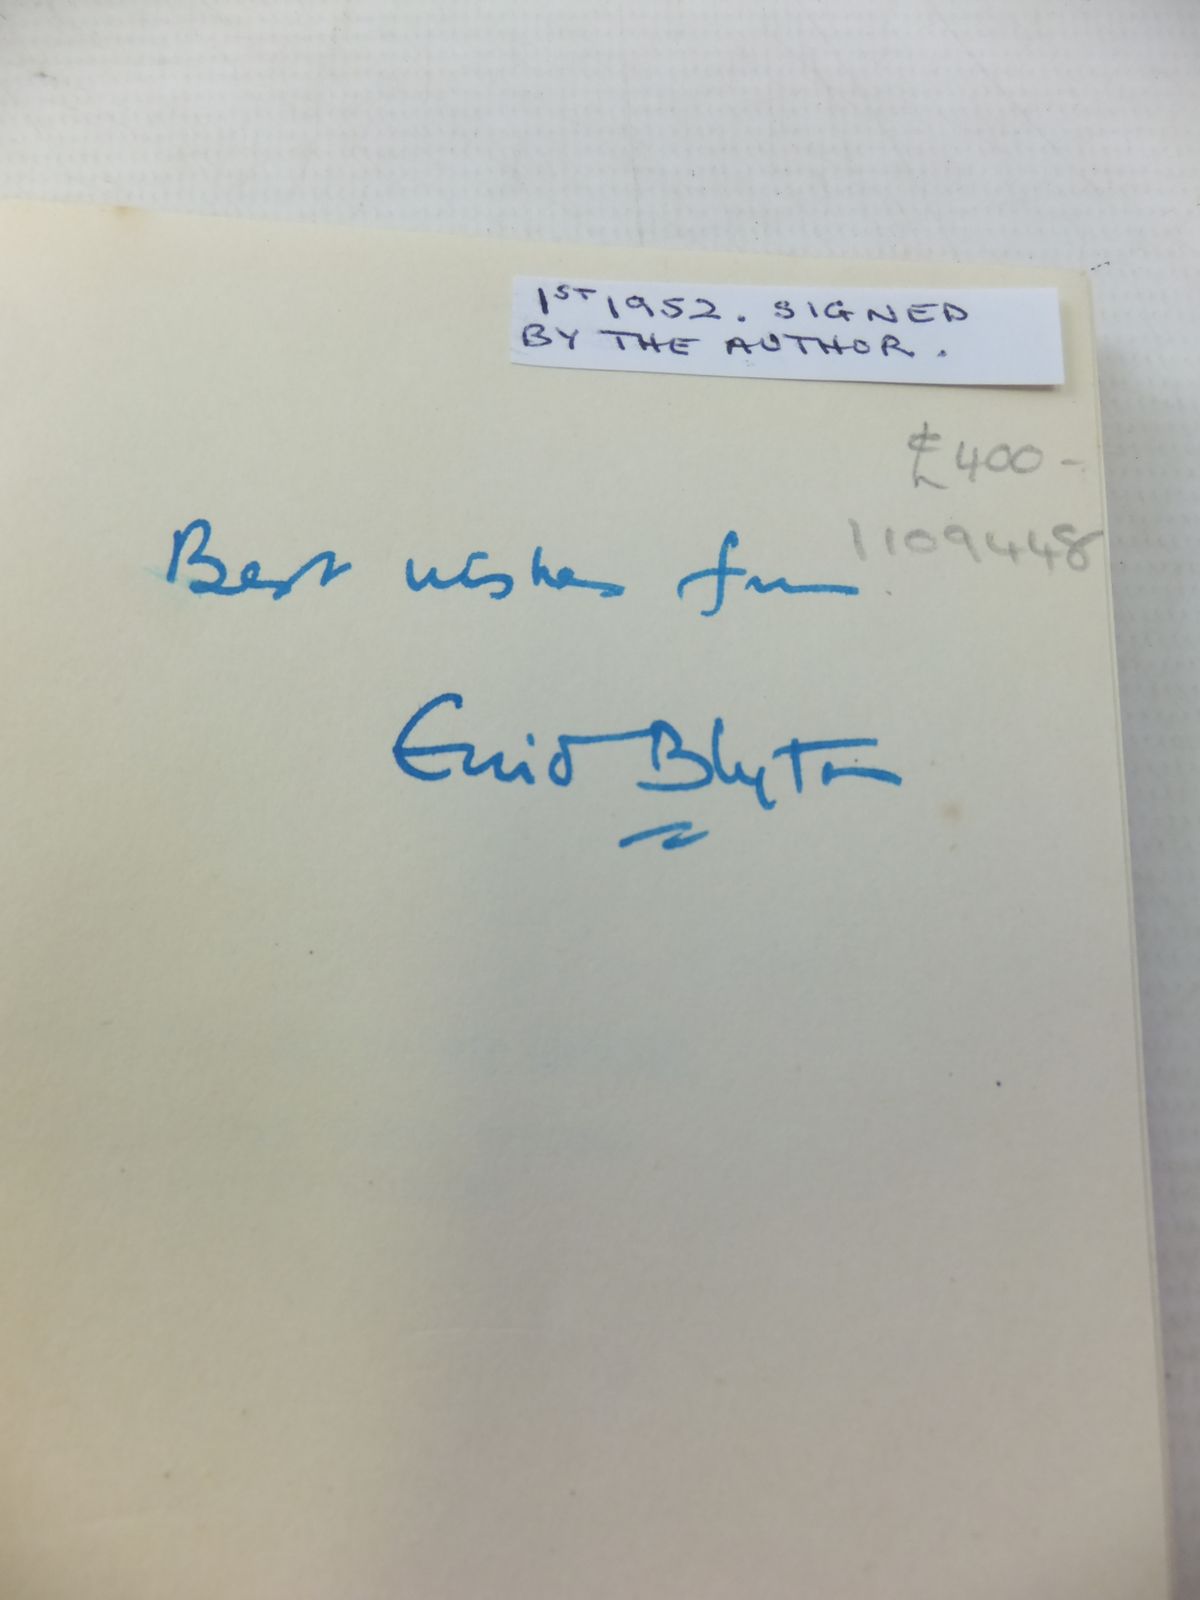 1ST 1952. SIGNED
BY THE AUTHOR.
£400-
1109448
Best wishes from
Enid Blyton